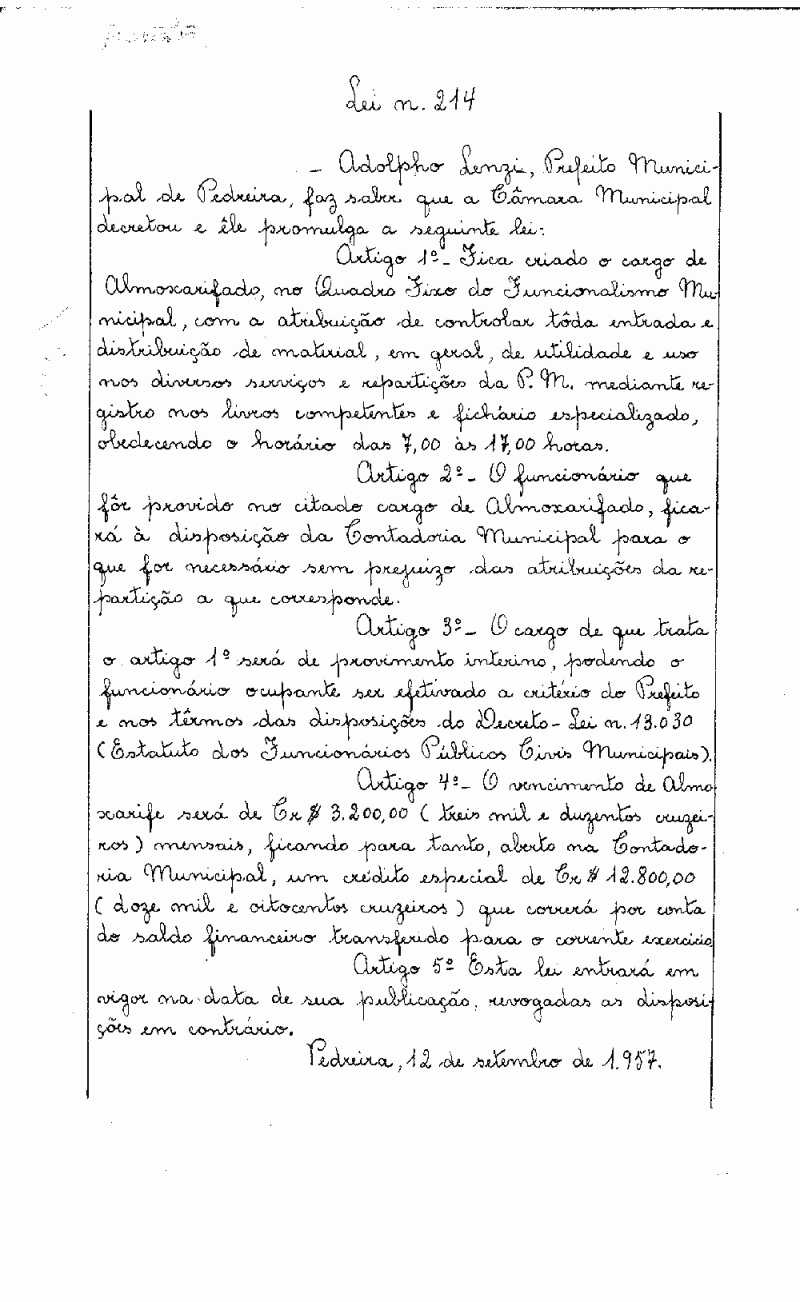 Lei n. 214
- Adolpho Lenzi, Prefeito Munici-
pal de Pedreira, faz saber que a Câmara Municipal
decretou e êle promulga a seguinte lei:
Artigo 1º- Fica criado o cargo de
Almoxarifado, no Quadro Fixo do Funcionalismo Mu-
nicipal, com a atribuição de controlar tôda entrada e
distribuição de material, em geral, de utilidade e uso
nos diversos serviços e repartições da P. M. mediante re-
gistro nos livros competentes e fichário especializado,
obedecendo o horário das 7,00 às 17,00 horas.
Artigo 2º- O funcionário que
fôr provido no citado cargo de Almoxarifado, fica-
rá à disposição da Contadoria Municipal para o
que for necessário sem prejuizo das atribuições da re-
partição a que corresponde.
Artigo 3º- O cargo de que trata
o artigo 1º será de provimento interino, podendo o
funcionário ocupante ser efetivado a critério do Prefeito
e nos têrmos das disposições do Decreto-Lei n. 13.030
(Estatuto dos Funcionários Públicos Civis Municipais).
Artigo 4º- O vencimento de Almo
xarife será de Cr$ 3.200,00 (treis mil e duzentos cruzei-
ros) mensais, ficando para tanto, aberto na Contado-
ria Municipal, um crédito especial de Cr$ 12.800,00
(doze mil e oitocentos cruzeiros) que correrá por conta
do saldo financeiro transferido para o corrente exercício
Artigo 5º Esta lei entrará em
vigor na data de sua publicação, revogadas as disposi-
ções em contrário.
Pedreira, 12 de setembro de 1.957.